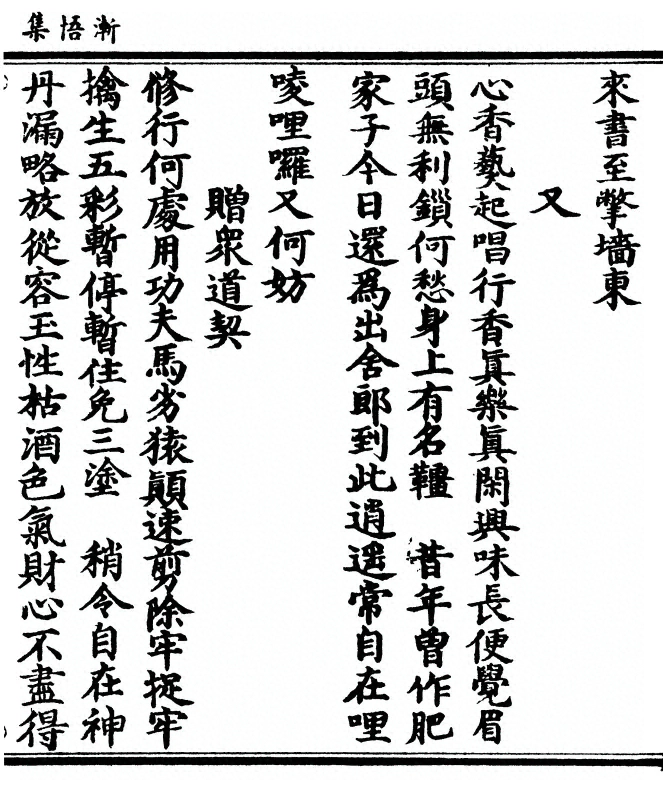 漸悟集
來書至撆墻東
又
心香爇起唱行香眞樂眞閑興味長便覺眉
頭無利鎖何愁身上有名韁　昔年曾作肥
家子今日還爲出舍郎到此逍遥常自在哩
唛哩囉又何妨
贈衆道契
修行何處用功夫馬劣猿顚速剪除牢捉牢
擒生五彩暫停暫住免三塗　稍令自在神
丹漏略放從容玉性枯酒色氣財心不盡得